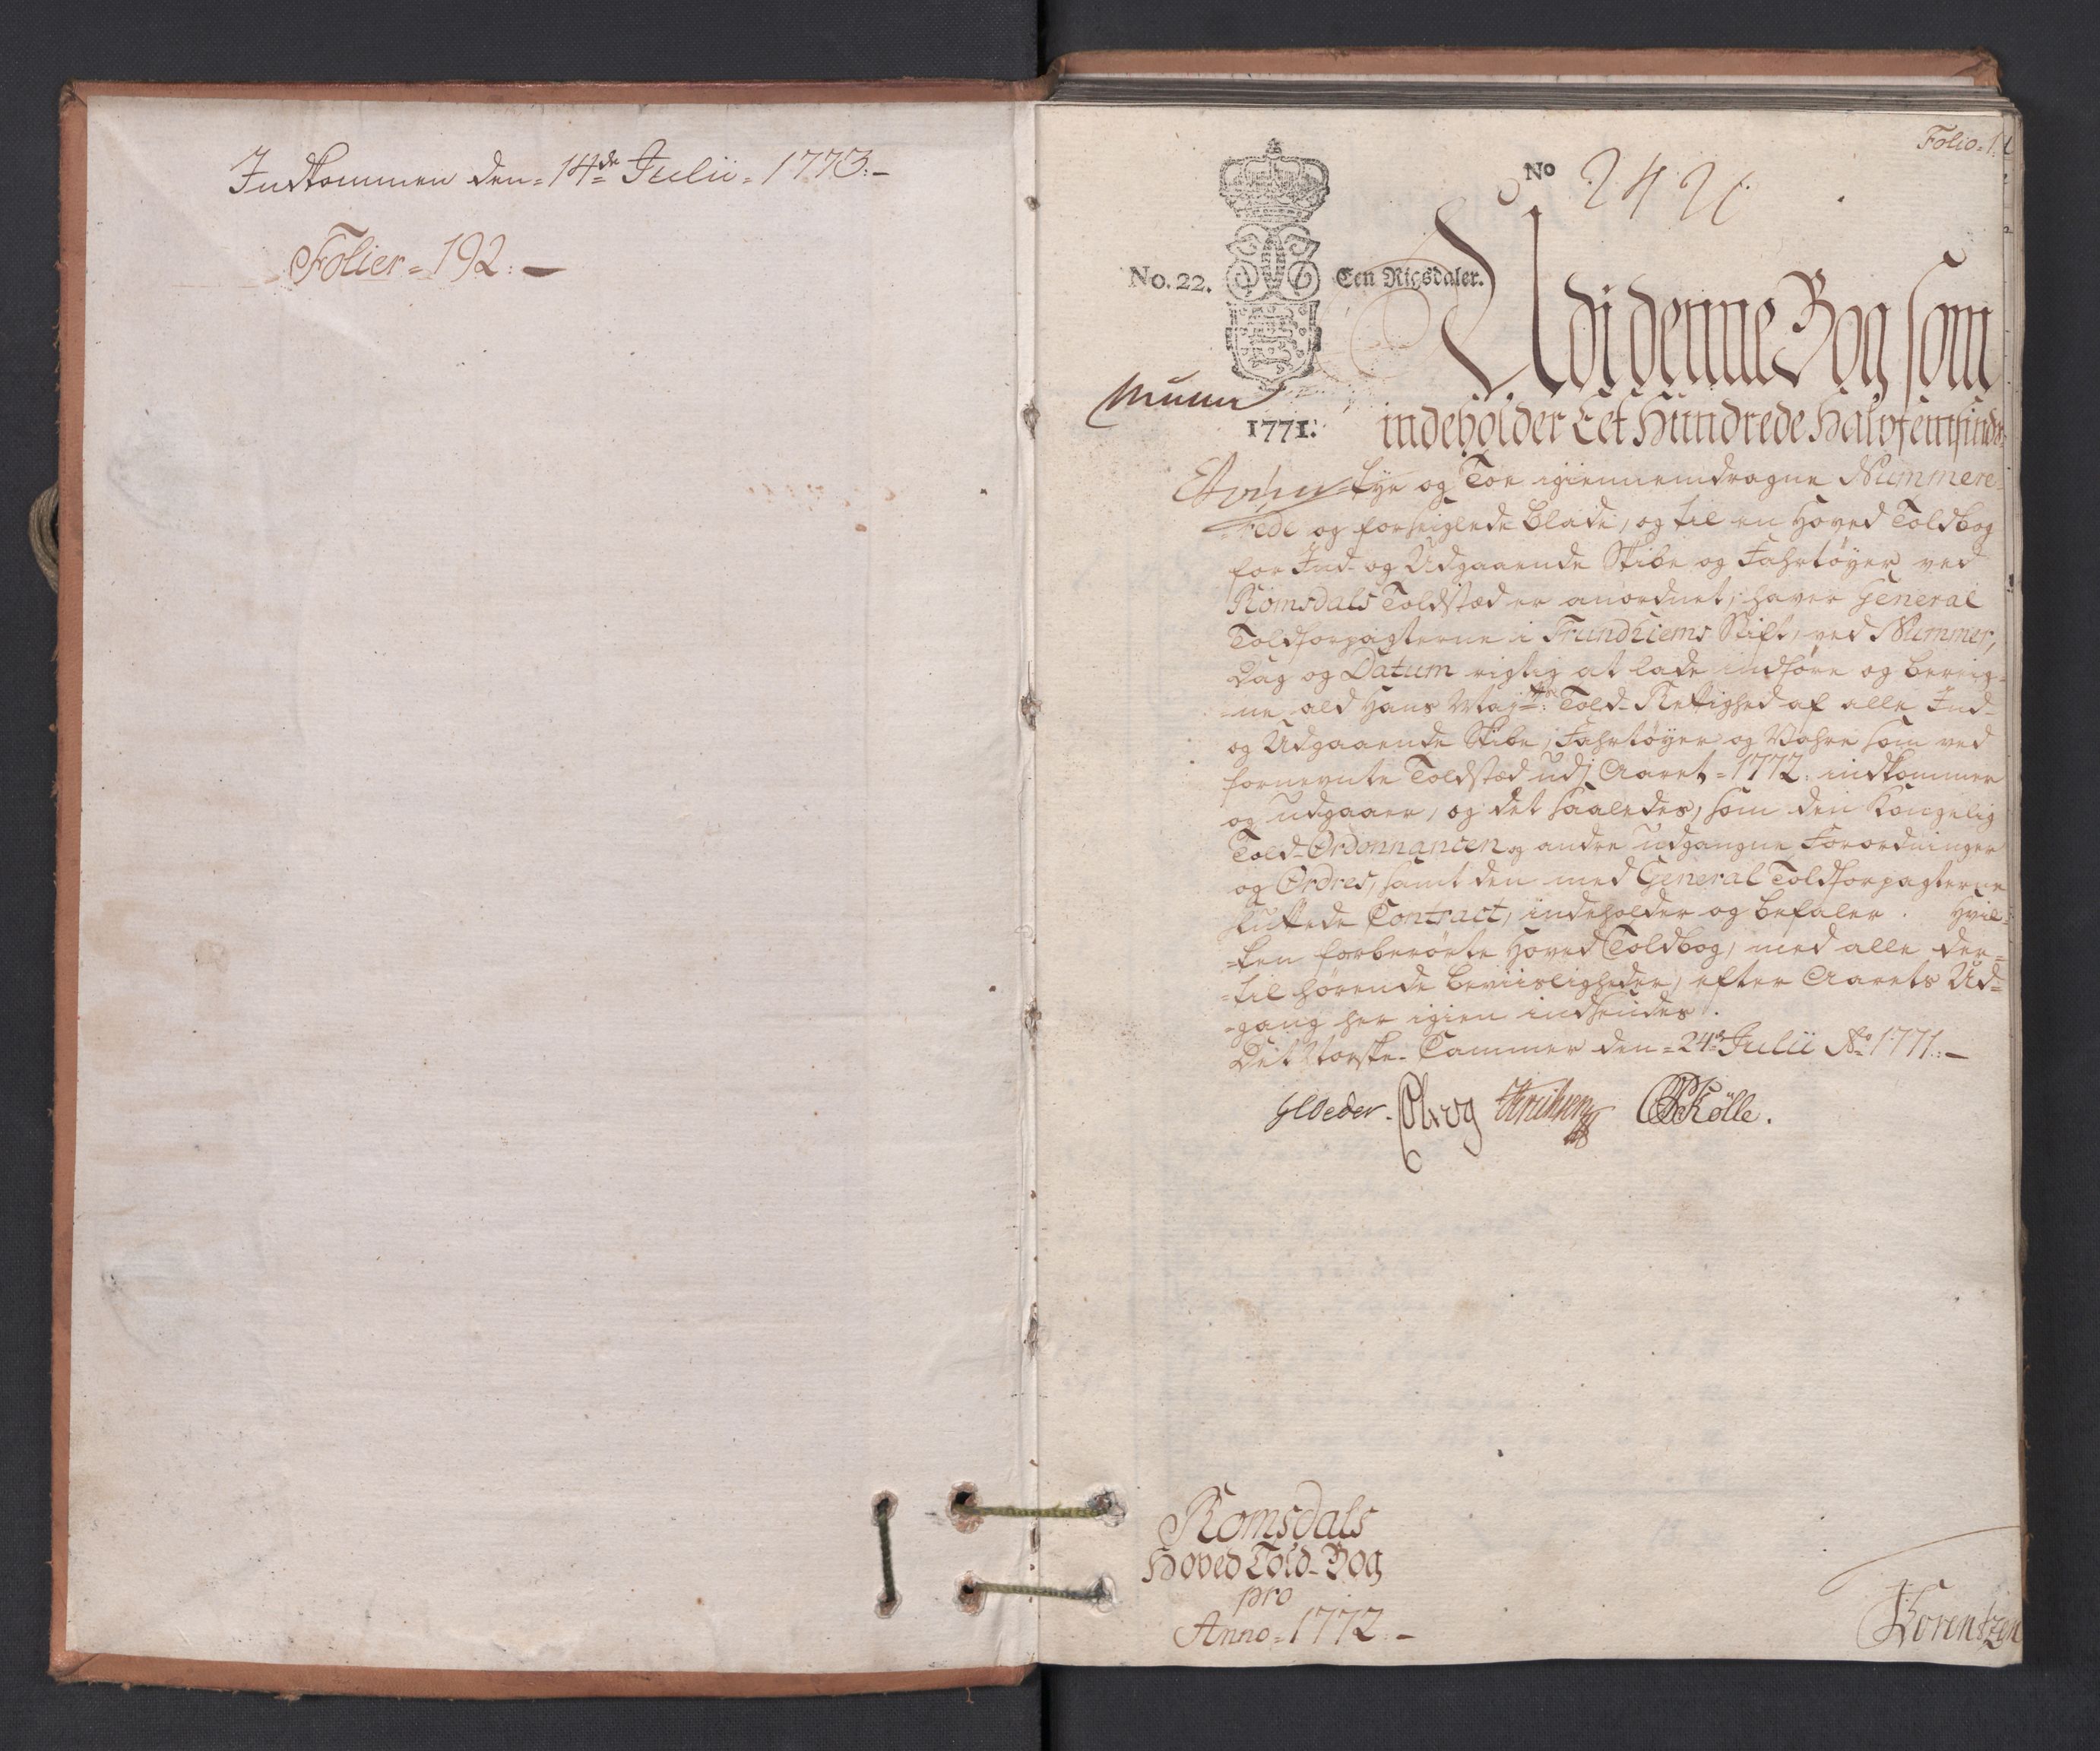 Indkommen den 14de Julii 1773.
Folier 192.
Folio 1.
No 242
No. 22. Een Rigsdaler.
1771.
Udi denne Bog som
indeholder Eet Hundrede Halvfemsinds-
tyve og Toe igiennemdragne Nummere-
rede og forseiglede Blade, og til en Hoved Toldbog
for Ind- og Udgaaende Skibe og Fahrtøyer ved
Romsdals Toldstæd er anordnet, haver General
Toldforpagterne i Trundhiems Stift, ved Nummer,
Dag og Datum rigtig at lade indføre og bereig-
ne ald Hans Majts: Told-Rettighed af alle Ind-
og Udgaaende Skibe, Fahrtøyer og Vahre som ved
fornevnte Toldstæd udj Aaret 1772. indkommer
og udgaaer, og det saaledes, som den Kongelig
Told-Ordonnancen og andre udgangne Forordninger
og Ordres, samt den med General Toldforpagterne
sluttede Contract, indeholder og befaler. Hvil-
ken forberørte Hoved Toldbog, med alle der-
til hørende Beviisligheder, efter Aarets Ud-
gang her igien indsendes.
Det Norske Cammer den 24de Julii Ao 1771.
Kölle.
Romsdals
Hoved Told-Bog
pro
Anno 1772.
Lorentzen